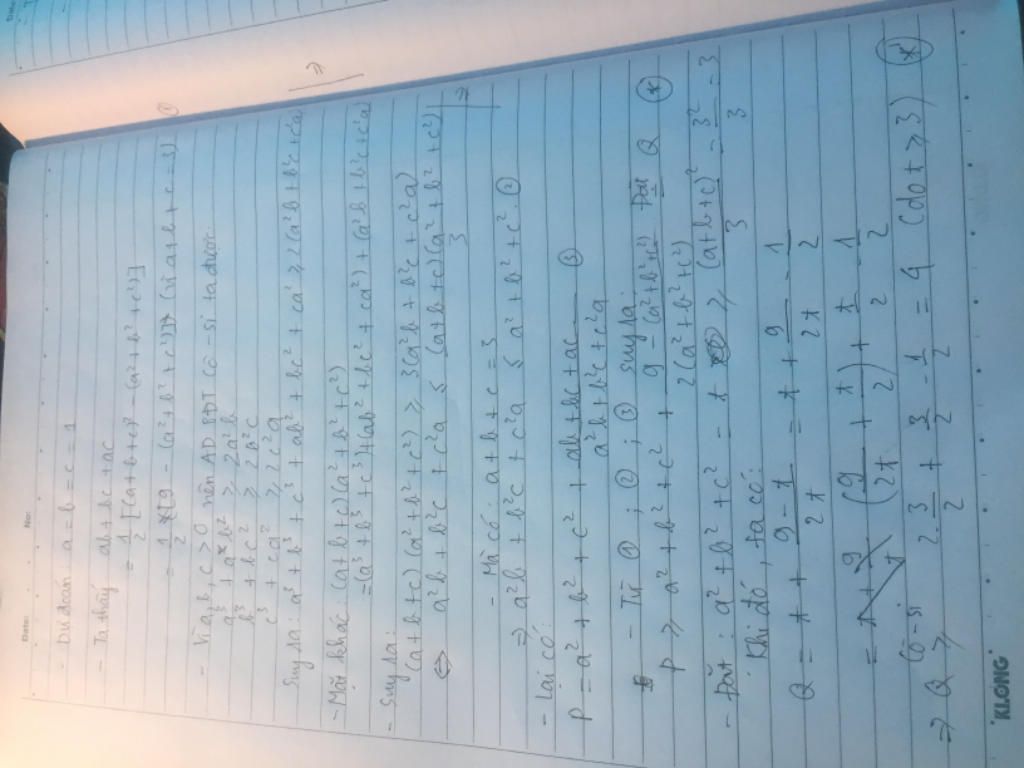 Date: No:
- Dự đoán: a = b = c = 1
- Ta thấy ab + bc + ac
= 1/2 [(a+b+c)² - (a² + b² + c²)]
= 1/2 [9 - (a² + b² + c²)] (vì a+b+c = 3) ①
- Vì a, b, c > 0 nên AD BĐT Cô-si ta được:
a³ + ab² ≥ 2a²b
b³ + bc² ≥ 2b²c
c³ + ca² ≥ 2c²a
Suy ra: a³ + b³ + c³ + ab² + bc² + ca² ≥ 2(a²b + b²c + c²a)
- Mặt khác: (a+b+c)(a² + b² + c²)
= (a³ + b³ + c³) + (ab² + bc² + ca²) + (a²b + b²c + c²a)
- Suy ra:
(a+b+c)(a² + b² + c²) ≥ 3(a²b + b²c + c²a)
⇔ a²b + b²c + c²a ≤ (a+b+c)(a² + b² + c²)/3 ⇒
- Mà có: a + b + c = 3
⇒ a²b + b²c + c²a ≤ a² + b² + c² ②
- Lại có:
P = a² + b² + c² + (ab + bc + ac)/(a²b + b²c + c²a) ③
- Từ ①; ②; ③ suy ra:
P ≥ a² + b² + c² + (9 - (a² + b² + c²))/(2(a² + b² + c²)) Đặt = Q (*)
- Đặt: a² + b² + c² = t ≥ (a+b+c)²/3 = 3²/3 = 3
Khi đó, ta có:
Q = t + (9 - t)/2t = t + 9/2t - 1/2
= (9/2t + t/2) + t/2 - 1/2
⇒ Q ≥ (Cô-si) 2.3/2 + 3/2 - 1/2 = 4 (do t ≥ 3) (*)
KLONG